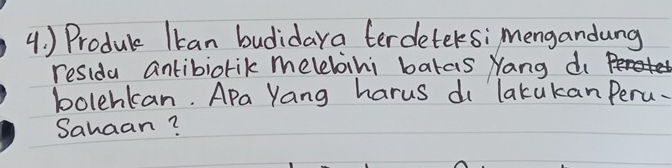 4.) Produk Ikan budidaya terdeteksi mengandung
residu antibiotik melebihi batas yang di
bolehkan. Apa yang harus di lakukan Peru-
Sahaan ?